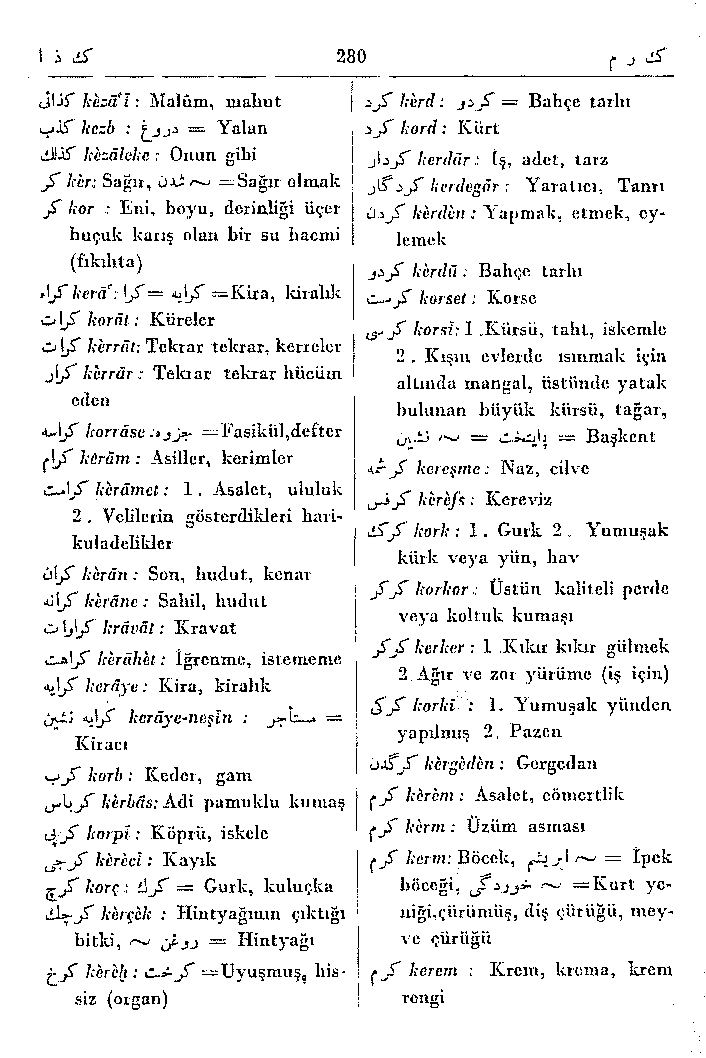 ك ذ ا 280 ك ر م
كذائی kèzā'ī : Malûm, mahut
كذب kezb : دروغ = Yalan
كذلك kèzāleke : Onun gibi
كر kèr: Sağır, ~ شدن =Sağır olmak
كر kor : Eni, boyu, derinliği üçer
buçuk karış olan bir su hacmi
(fıkıhta)
كراء kerā': كرا = كرايه =Kira, kiralık
كرات korāt : Küreler
كرات kèrrāt: Tekrar tekrar, kerreler
كرار kèrrār : Tekrar tekrar hücüm
eden
كراسه korrāse : جزوه =Fasikül,defter
كرام kèrām : Asiller, kerimler
كرامت kèrāmet : 1 . Asalet, ululuk
2 . Velilerin gösterdikleri hari-
kuladelikler
كران kèrān : Son, hudut, kenar
كرانه kèrāne : Sahil, hudut
كراوات krāvāt : Kravat
كراهت kèrāhèt : İğrenme, istememe
كرايه kerāye : Kira, kiralık
كرايه نشين kerāye-neşīn : مستأجر =
Kiracı
كرب korb : Keder, gam
كرباس kèrbās: Adi pamuklu kumaş
كرپی korpī : Köprü, iskele
كرجی kèrècī : Kayık
كرچ korç : كرك = Gurk, kuluçka
كرچك kèrçèk : Hintyağının çıktığı
bitki, ~ روغن = Hintyağı
كرخ kèrèḫ : كرخت =Uyuşmuş, his-
siz (organ)
كرد kèrd : كردو = Bahçe tarhı
كرد kord : Kürt
كردار kerdār : İş, adet, tarz
كردگار kerdegār : Yaratıcı, Tanrı
كردن kèrdèn : Yapmak, etmek, ey-
lemek
كردو kèrdū : Bahçe tarhı
كرست korset : Korse
كرسی korsī: 1 .Kürsü, taht, iskemle
2 . Kışın evlerde ısınmak için
altında mangal, üstünde yatak
bulunan büyük kürsü, tağar,
~ نشين = پايتخت = Başkent
كرشمه kereşme : Naz, cilve
كرفس kèrèfs : Kereviz
كرك kork : 1 . Gurk 2 . Yumuşak
kürk veya yün, hav
كركر korkor : Üstün kaliteli perde
veya koltuk kumaşı
كركر kerker : 1 .Kıkır kıkır gülmek
2.Ağır ve zor yürüme (iş için)
كركی korkī : 1. Yumuşak yünden
yapılmış 2. Pazen
كرگدن kèrgèdèn : Gergedan
كرم kèrèm : Asalet, cömertlik
كرم kèrm : Üzüm asması
كرم kerm: Böcek, ~ ابريشم = İpek
böceği, ~ خوردگی =Kurt ye-
niği,çürümüş, diş çürüğü, mey-
ve çürüğü
كرم kerem : Krem, krema, krem
rengi